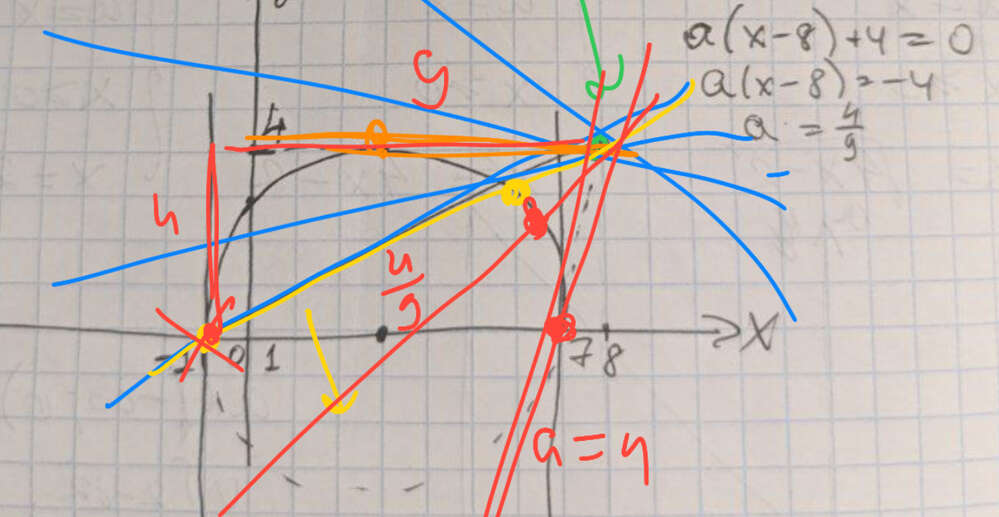 a(x-8)+4=0
a(x-8)=-4
a = 4/9
9
4
4
4/9
-1 0 1 7 8 X
a=4